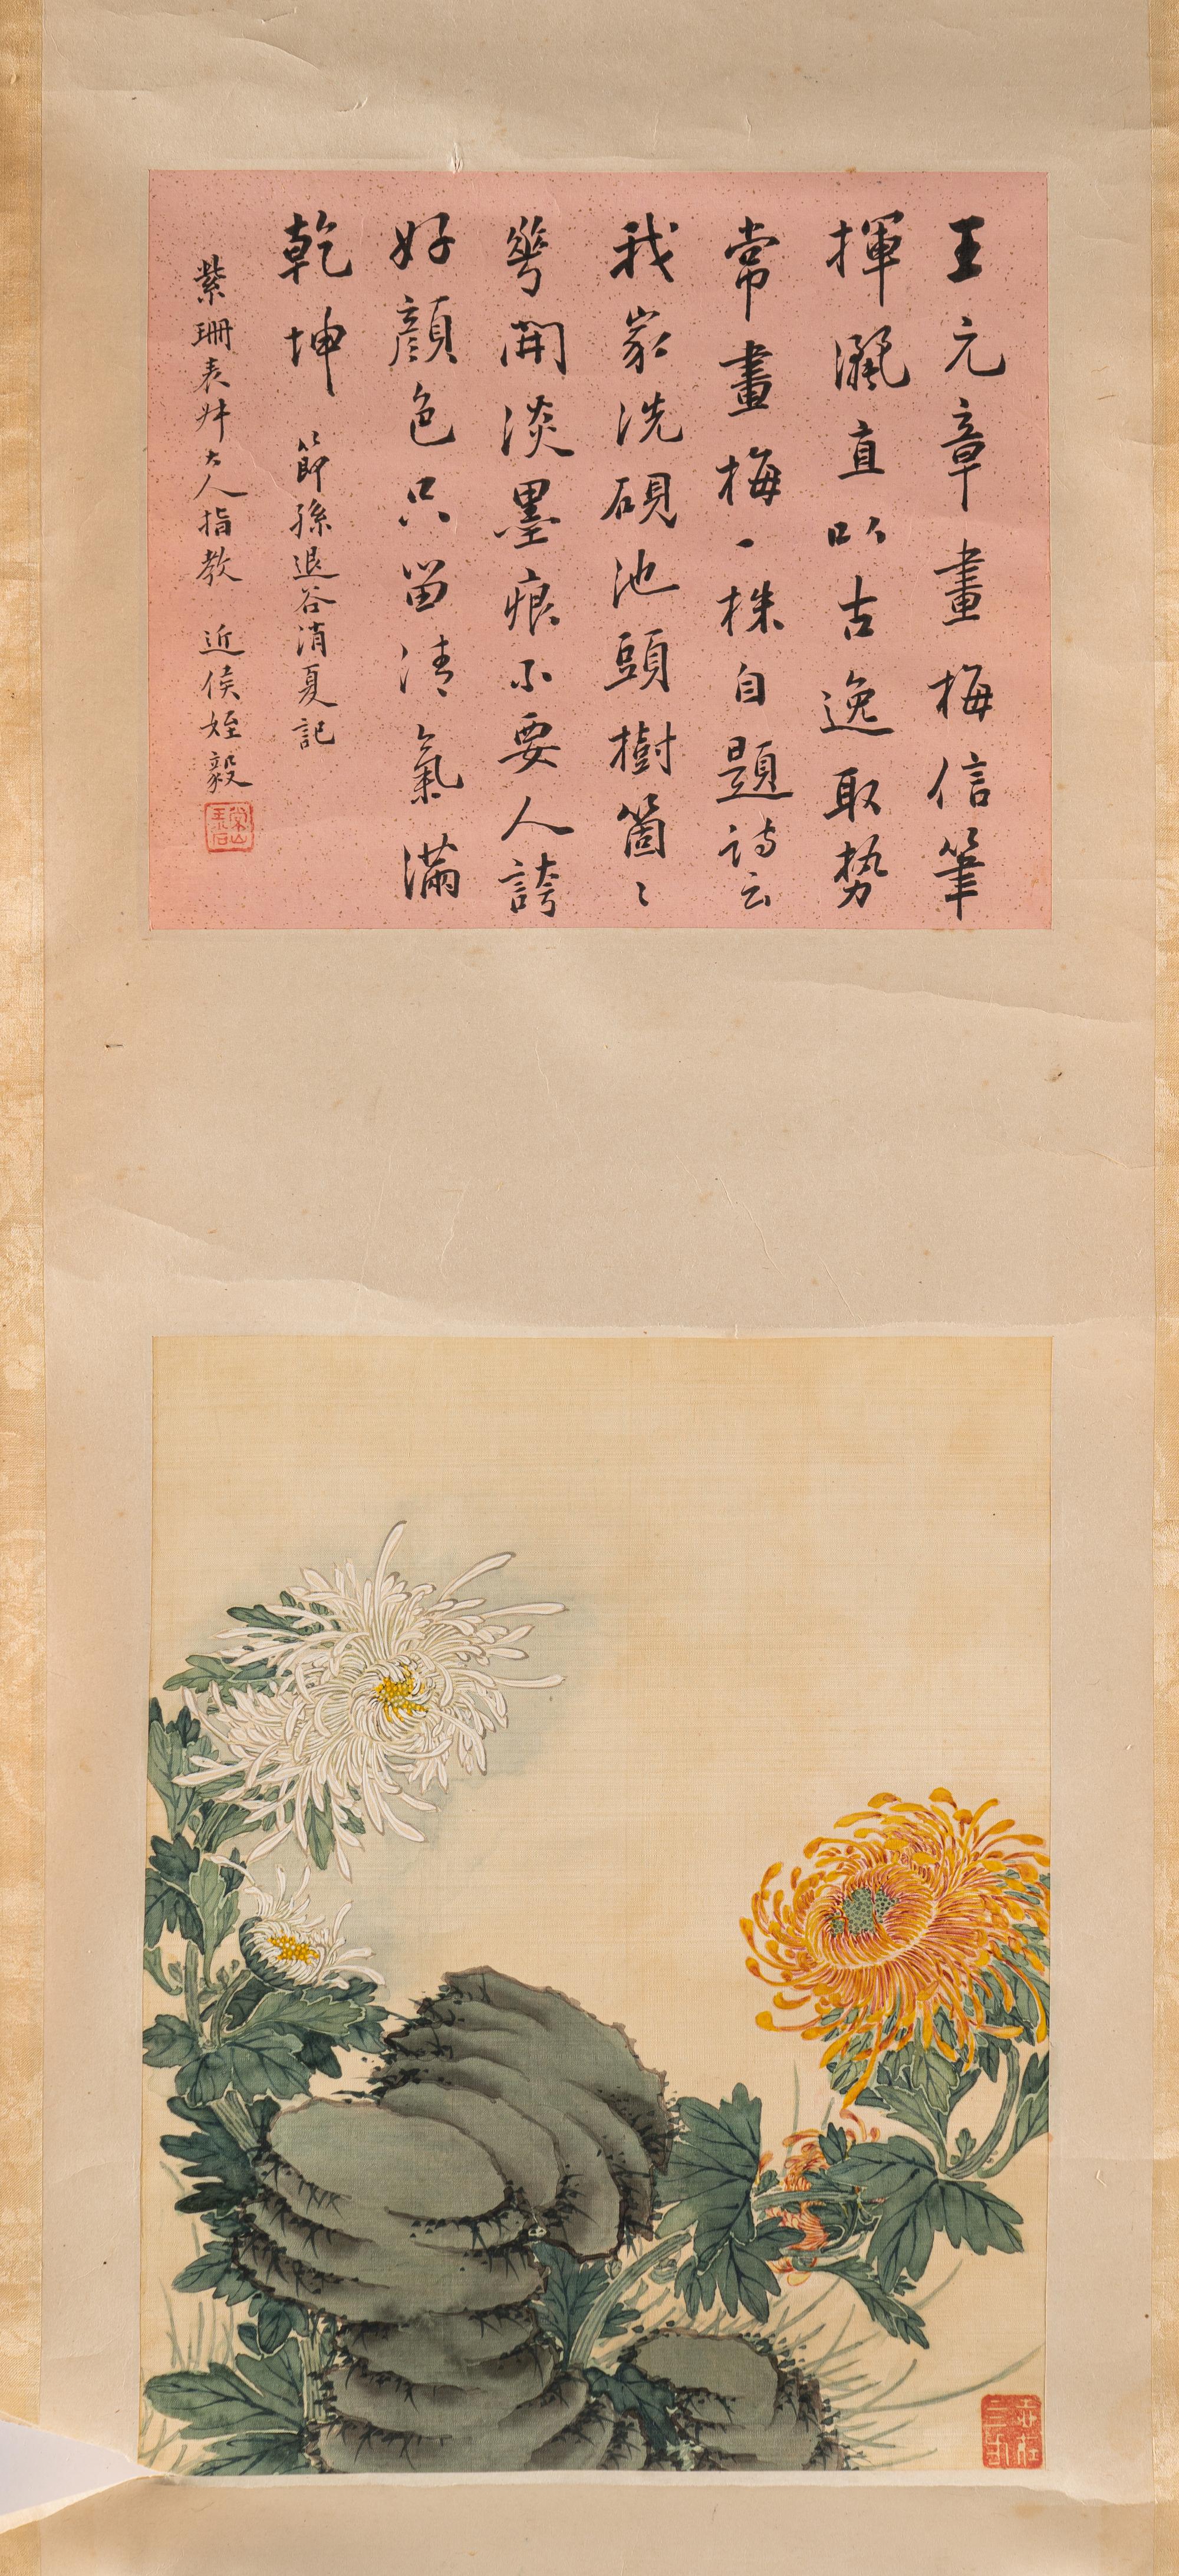 王元章畫梅信筆
揮灑直以古逸取勢
常畫梅一株自題詩云
我家洗硯池頭樹箇〻
華開淡墨痕不要人誇
好顏色只留清氣滿
乾坤 節孫退谷消夏記
紫珊表叔大人指教 近侯姪毅